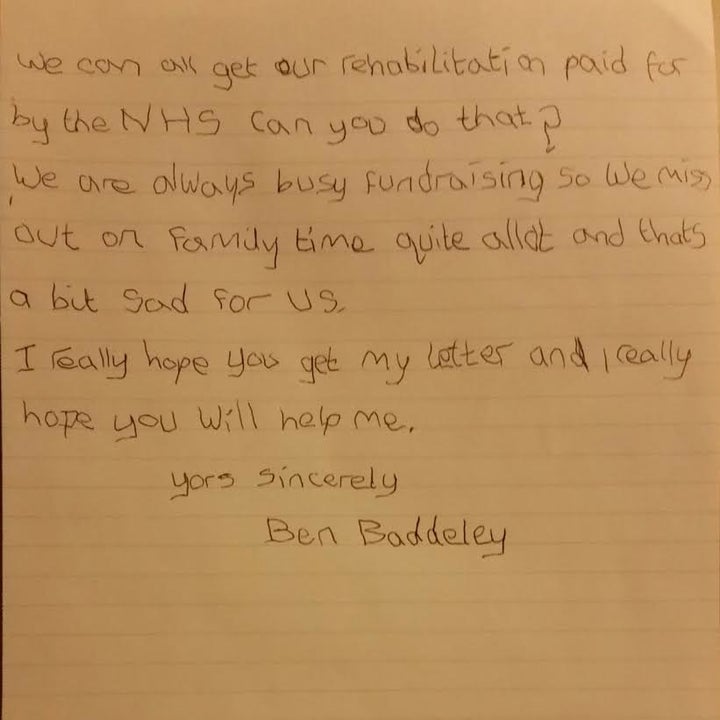 We can all get our rehabilitation paid for
by the NHS can you do that?
We are always busy fundraising so we miss
out on family time quite allot and thats
a bit sad for us.
I really hope you get my letter and I really
hope you will help me.
yors sincerely
Ben Baddeley